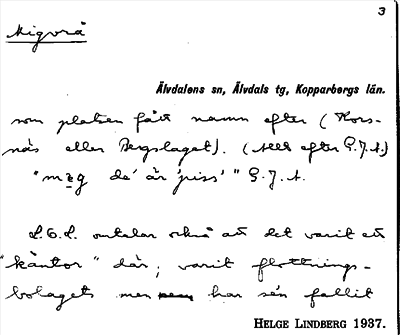 3
Migorå
Älvdalens sn, Älvdals tg, Kopparbergs län.
som platsen fått namn efter (Kors-
näs eller Bergslaget). (allt efter G.J.A.)
"mıg de' är 'piss'" G.J.A.
L.O.L. omtalar också att det varit ett
"kåntor" där, varit flottnings-
bolagets men har sén fallit
HELGE LINDBERG 1937.